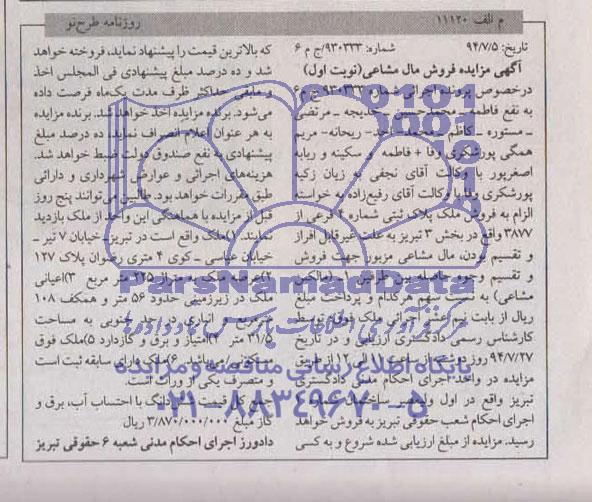 م الف ۱۱۱۲۰
روزنامه طرح‌نو
تاریخ: ۹۴/۷/۵ شماره: ۹۳۰۳۳۳/ج م ۶
آگهی مزایده فروش مال مشاعی(نوبت اول)
درخصوص پرونده اجرائی شماره ۹۳۰۳۳۳ ج م ۶
به نفع فاطمه ـ محمد ـ حسین ـ خدیجه ـ مرتضی
ـ مستوره ـ کاظم ـ محمد ـ احد ـ ریحانه ـ مریم
همگی پورشکری وفا + فاطمه و سکینه و ربابه
اصغرپور با وکالت آقای نجفی به زیان زکیه
پورشکری وفا با وکالت آقای رفیع‌زاده به خواسته
الزام به فروش ملک پلاک ثبتی شماره ۴ فرعی از
۳۸۷۷ واقع در بخش ۳ تبریز به علت غیرقابل افراز
و تقسیم بودن، مال مشاعی مزبور جهت فروش
و تقسیم وجوه حاصله بین طرفین (مالکین
مشاعی) به نسبت سهم هرکدام و پرداخت مبلغ
ریال از بابت نیم عشر اجرائی ملک فوق توسط
کارشناس رسمی دادگستری ارزیابی و در تاریخ
۹۴/۷/۲۷ روز دوشنبه از ساعت ۱۱ الی ۱۲ از طریق
مزایده در واحد اجرای احکام مدنی دادگستری
تبریز واقع در اول ولیعصر ساختمان
اجرای احکام شعب حقوقی تبریز به فروش خواهد
رسید. مزایده از مبلغ ارزیابی شده شروع و به کسی
که بالاترین قیمت را پیشنهاد نماید، فروخته خواهد
شد و ده درصد مبلغ پیشنهادی فی المجلس اخذ
و مابقی حداکثر ظرف مدت یک‌ماه فرصت داده
می‌شود. برنده مزایده اخذ خواهد شد. برنده مزایده
به هر عنوان اعلام انصراف نماید، ده درصد مبلغ
پیشنهادی به نفع صندوق دولت ضبط خواهد شد.
هزینه‌های اجرائی و عوارض شهرداری و دارائی
طبق مقررات خواهد بود. طالبین می‌توانند پنج روز
قبل از مزایده با هماهنگی این واحد از ملک بازدید
نمایند. ۱)ملک واقع است در تبریز ـ خیابان ۷ تیر ـ
خیابان عباسی ـ کوی ۴ متری رضوان پلاک ۱۲۷
۲)عرصه ملک به متراژ ۲۲۵ متر مربع ۳)اعیانی
ملک در زیرزمینی حدود ۵۶ متر و همکف ۱۰۸
مترمربع و انباری در حد جنوبی به مساحت
۳۱/۵ متر ۴)امتیاز و برق و گاز دارد ۵)ملک فوق
مسکونی می‌باشد. ۶)ملک دارای سابقه ثبت است
و متصرف یکی از وراث است.
جمع کل قیمت شش دانگ با احتساب آب، برق و
گاز مبلغ ۳/۸۷۰/۰۰۰/۰۰۰ ریال
دادورز اجرای احکام مدنی شعبه ۶ حقوقی تبریز
ParsNamadData
پایگاه اطلاع رسانی مناقصه و مزایده
۰۲۱-۸۸۳۴۹۶۷۰-۵